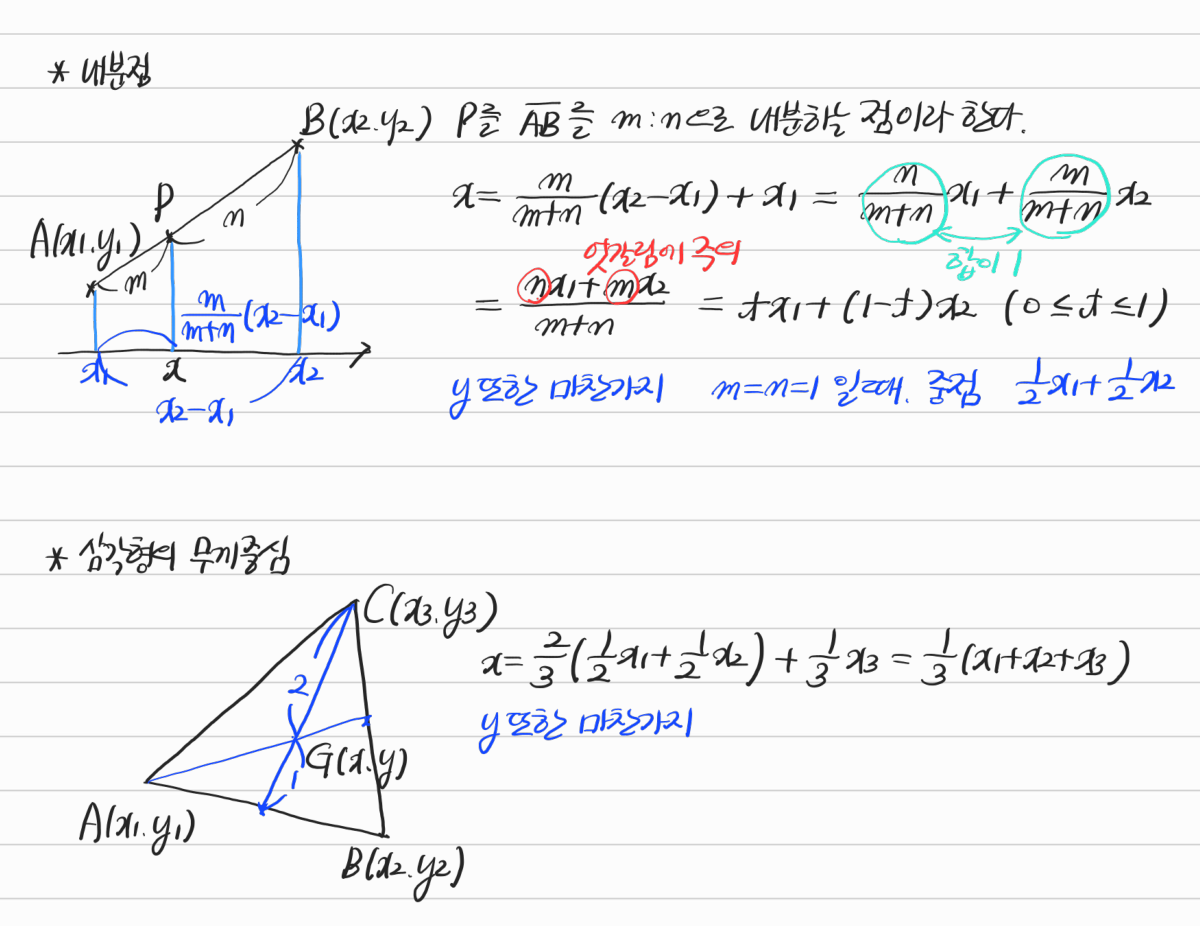 * 내분점
B(x₂.y₂) P를 AB를 m:n으로 내분하는 점이라 한다.
P
n
A(x₁.y₁)
m
m/(m+n) (x₂-x₁)
x₁ x x₂
x₂-x₁
x = m/(m+n) (x₂-x₁) + x₁ = n/(m+n) x₁ + m/(m+n) x₂
엇갈림에 주의
합이 1
= (nx₁+mx₂)/(m+n) = tx₁+(1-t)x₂ (0≤t≤1)
y 또한 마찬가지 m=n=1 일 때. 중점 1/2 x₁ + 1/2 x₂
* 삼각형의 무게중심
C(x₃.y₃)
2
G(x.y)
1
A(x₁.y₁)
B(x₂.y₂)
x = 2/3 (1/2 x₁ + 1/2 x₂) + 1/3 x₃ = 1/3 (x₁+x₂+x₃)
y 또한 마찬가지